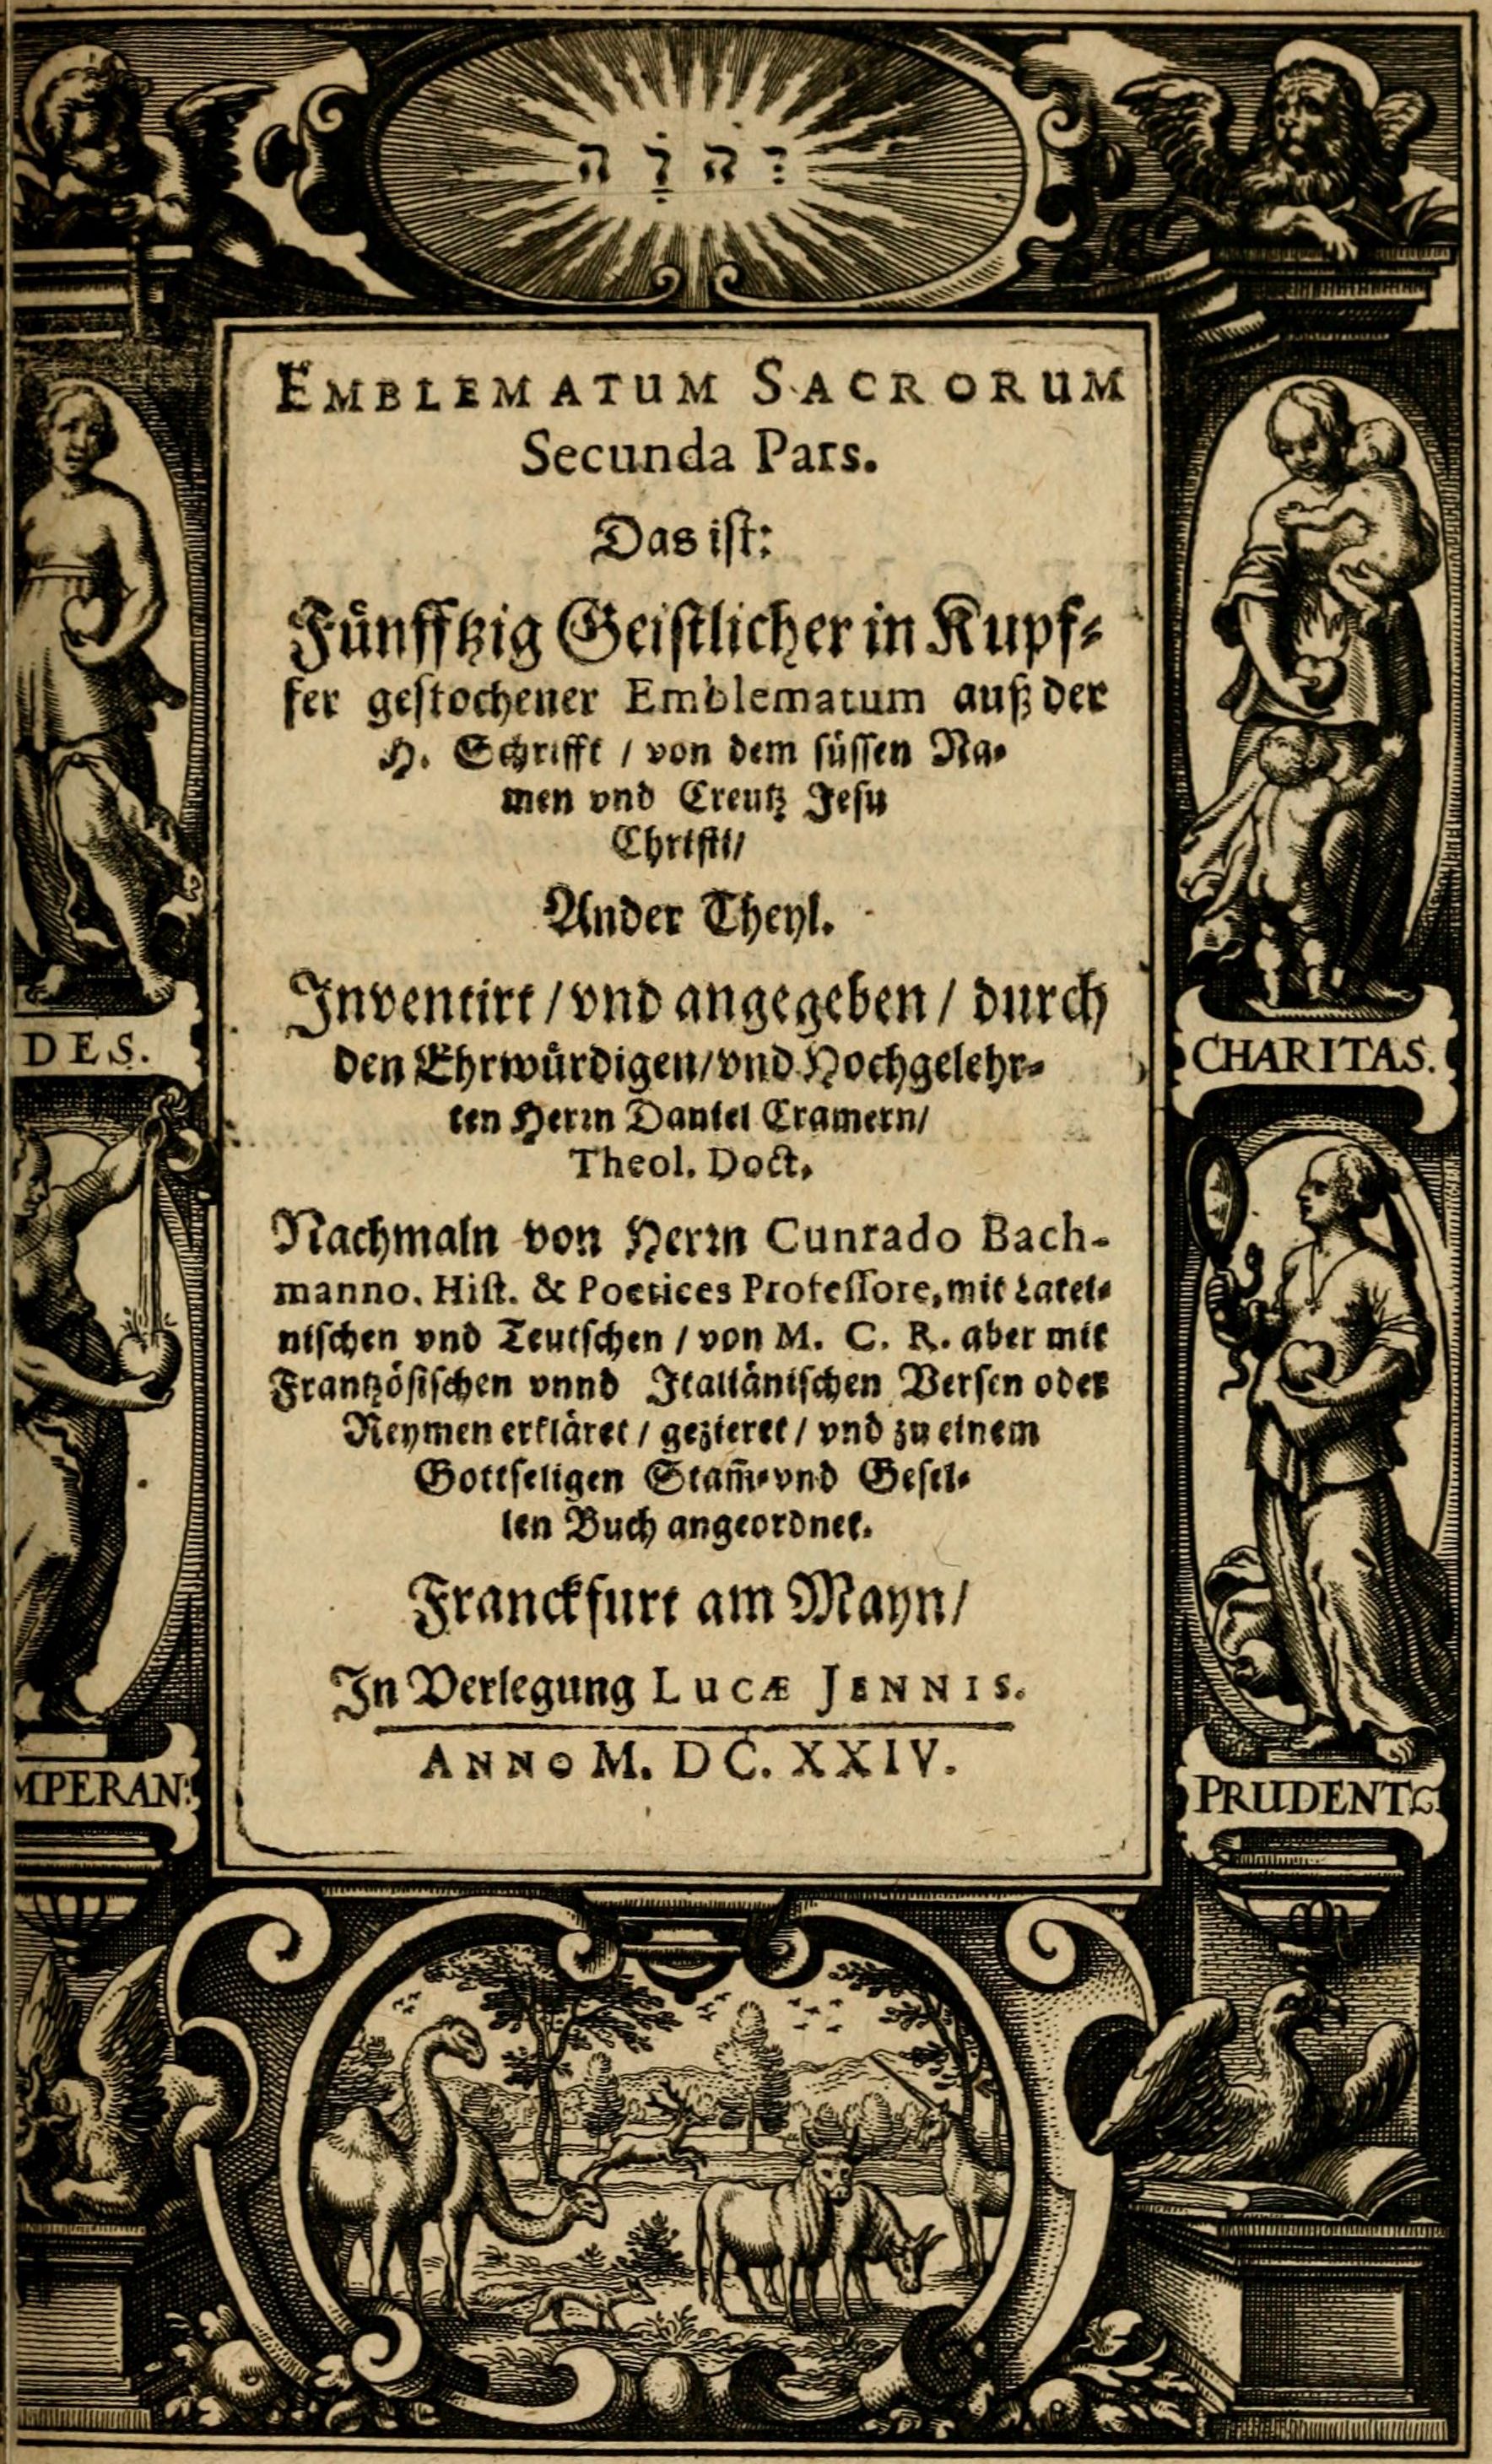 יְהֹוָה
EMBLEMATUM SACRORUM
Secunda Pars.
Das iſt:
Fuͤnfftzig Geiſtlicher in Kupf⸗
fer geſtochener Emblematum auß der
H. Schrifft / von dem ſüſſen Na⸗
men vnd Creutz Jeſu
Chriſti/
Ander Theyl.
Inventirt / vnd angegeben / durch
den Ehrwuͤrdigen/vnd Hochgelehr⸗
ten Herrn Daniel Cramern/
Theol. Doct.
Nachmaln von Herrn Cunrado Bach-
manno, Hiſt. & Poetices Profeſſore, mit Latei⸗
niſchen vnd Teutſchen / von M. C. R. aber mit
Frantzöſiſchen vnnd Italiäniſchen Verſen oder
Reymen erkläret / gezieret / vnd zu einem
Gottſeligen Stam̃⸗vnd Geſel⸗
len Buch angeordnet.
Franckfurt am Mayn/
In Verlegung LUCÆ JENNIS.
ANNO M. DC. XXIV.
DES.
CHARITAS.
MPERAN:
PRUDENT